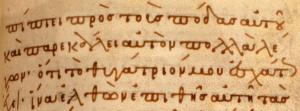 πίπτει πρὸς τοὺς πόδας αὐτοῦ
καὶ παρεκάλει αὐτὸν πολλὰ λέ
γων· ὅτι τὸ θυγάτριόν μου ἐσχάτ
ἵνα ἐλθὼν ἐπιθῆς αὐτῆ τὰς